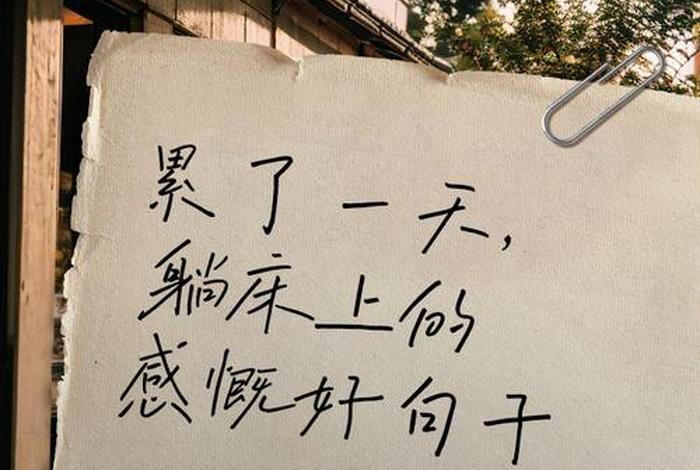 累了一天,
躺床上的
感慨好句子